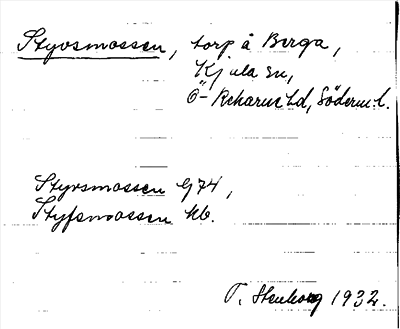 Styvsmossen, torp å Berga,
Kjula sn,
Ö-Rekarne hd, Söderm.l.
Styrsmossen G74,
Styfsmossen kb.
T. Stenborg 1932.